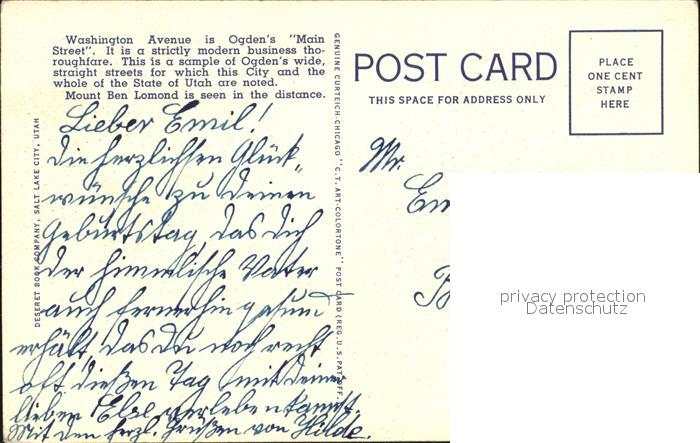 Washington Avenue is Ogden's "Main
Street". It is a strictly modern business tho-
roughfare. This is a sample of Ogden's wide,
straight streets for which this City and the
whole of the State of Utah are noted.
Mount Ben Lomond is seen in the distance.
Lieber Emil!
Die herzlichsten Glück-
wünsche zu Deinem
Geburtstag, das Dich
der himmlische Vater
auch fernerhin gesund
erhält, das Du noch recht
oft dießen Tag mit Deiner
lieben Else verleben kannst.
Mit den herzl. Grüßen von Hilde.
DESERET BOOK COMPANY, SALT LAKE CITY, UTAH
GENUINE CURTEICH-CHICAGO "C.T. ART-COLORTONE" POST CARD (REG. U.S. PAT. OFF.
POST CARD
THIS SPACE FOR ADDRESS ONLY
PLACE
ONE CENT
STAMP
HERE
Mr.
Em
B
privacy protection
Datenschutz